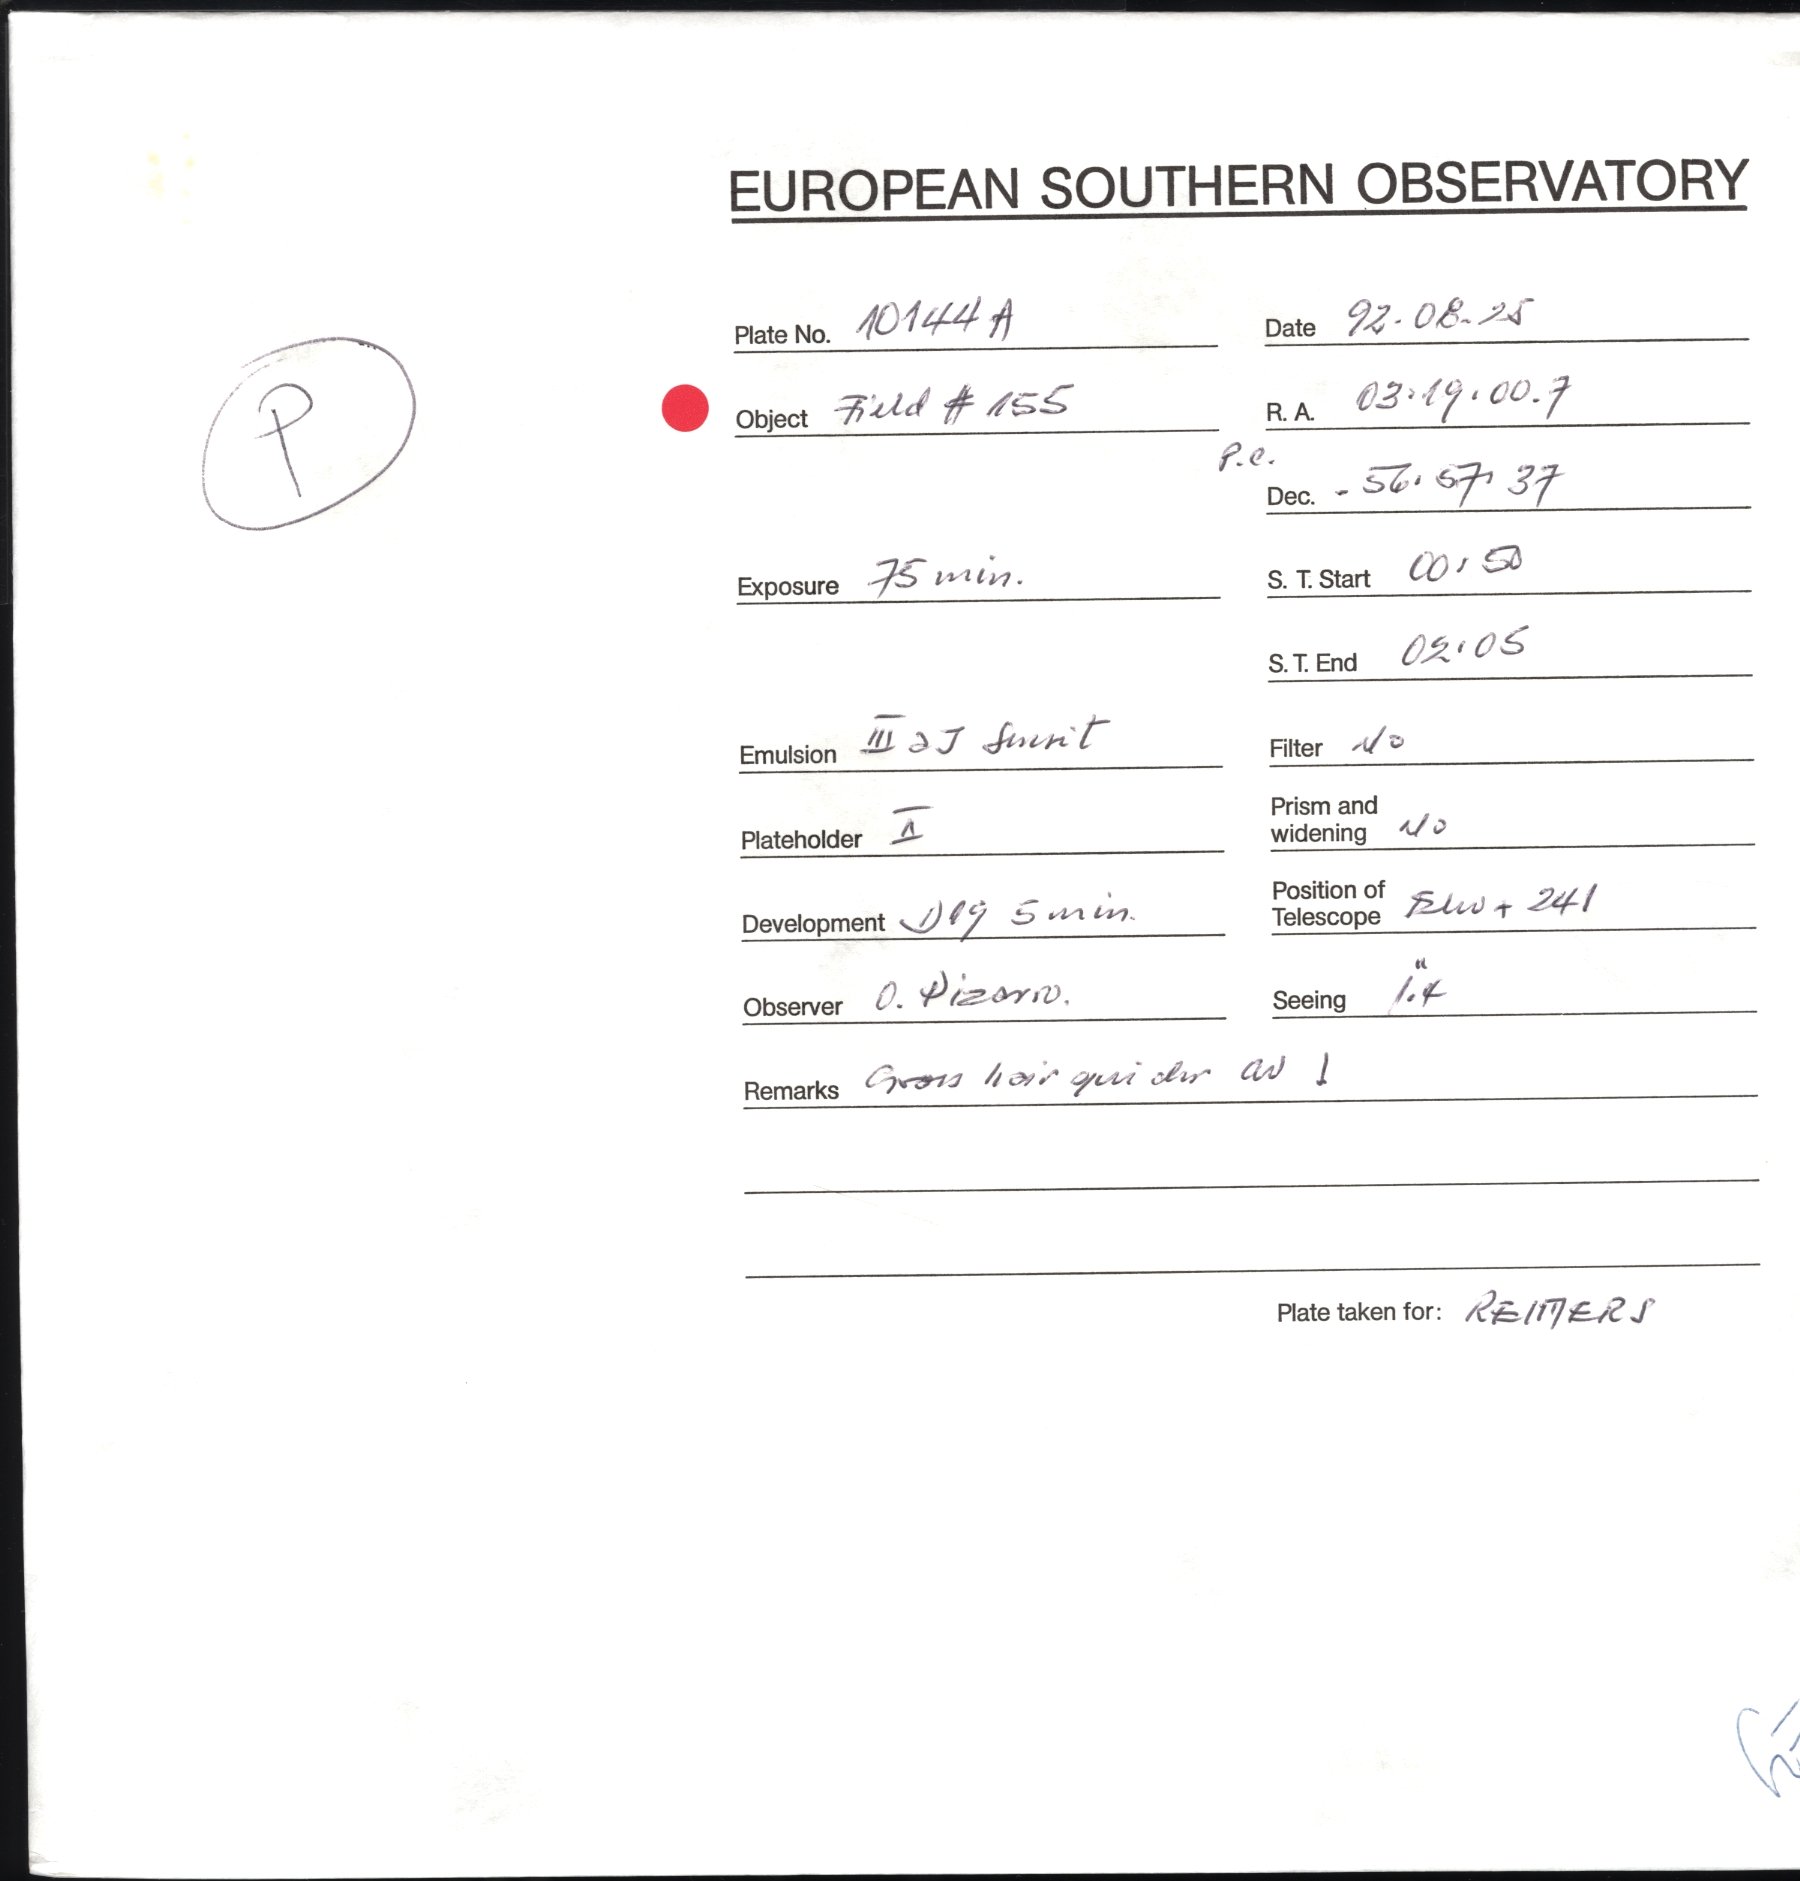 EUROPEAN SOUTHERN OBSERVATORY
Plate No. 10144 A Date 92-08-25
P
Object Field # 155 R. A. 03:19:00.7
P.C.
Dec. - 56: 57: 37
Exposure 75 min. S. T. Start 00:50
S. T. End 02:05
Emulsion III aJ Filter No
Plateholder II Prism and widening No
Development D19 5 min. Position of Telescope + 241
Observer O. Pizarro. Seeing 1."4
Remarks Cross hair guider
Plate taken for: REIMERS